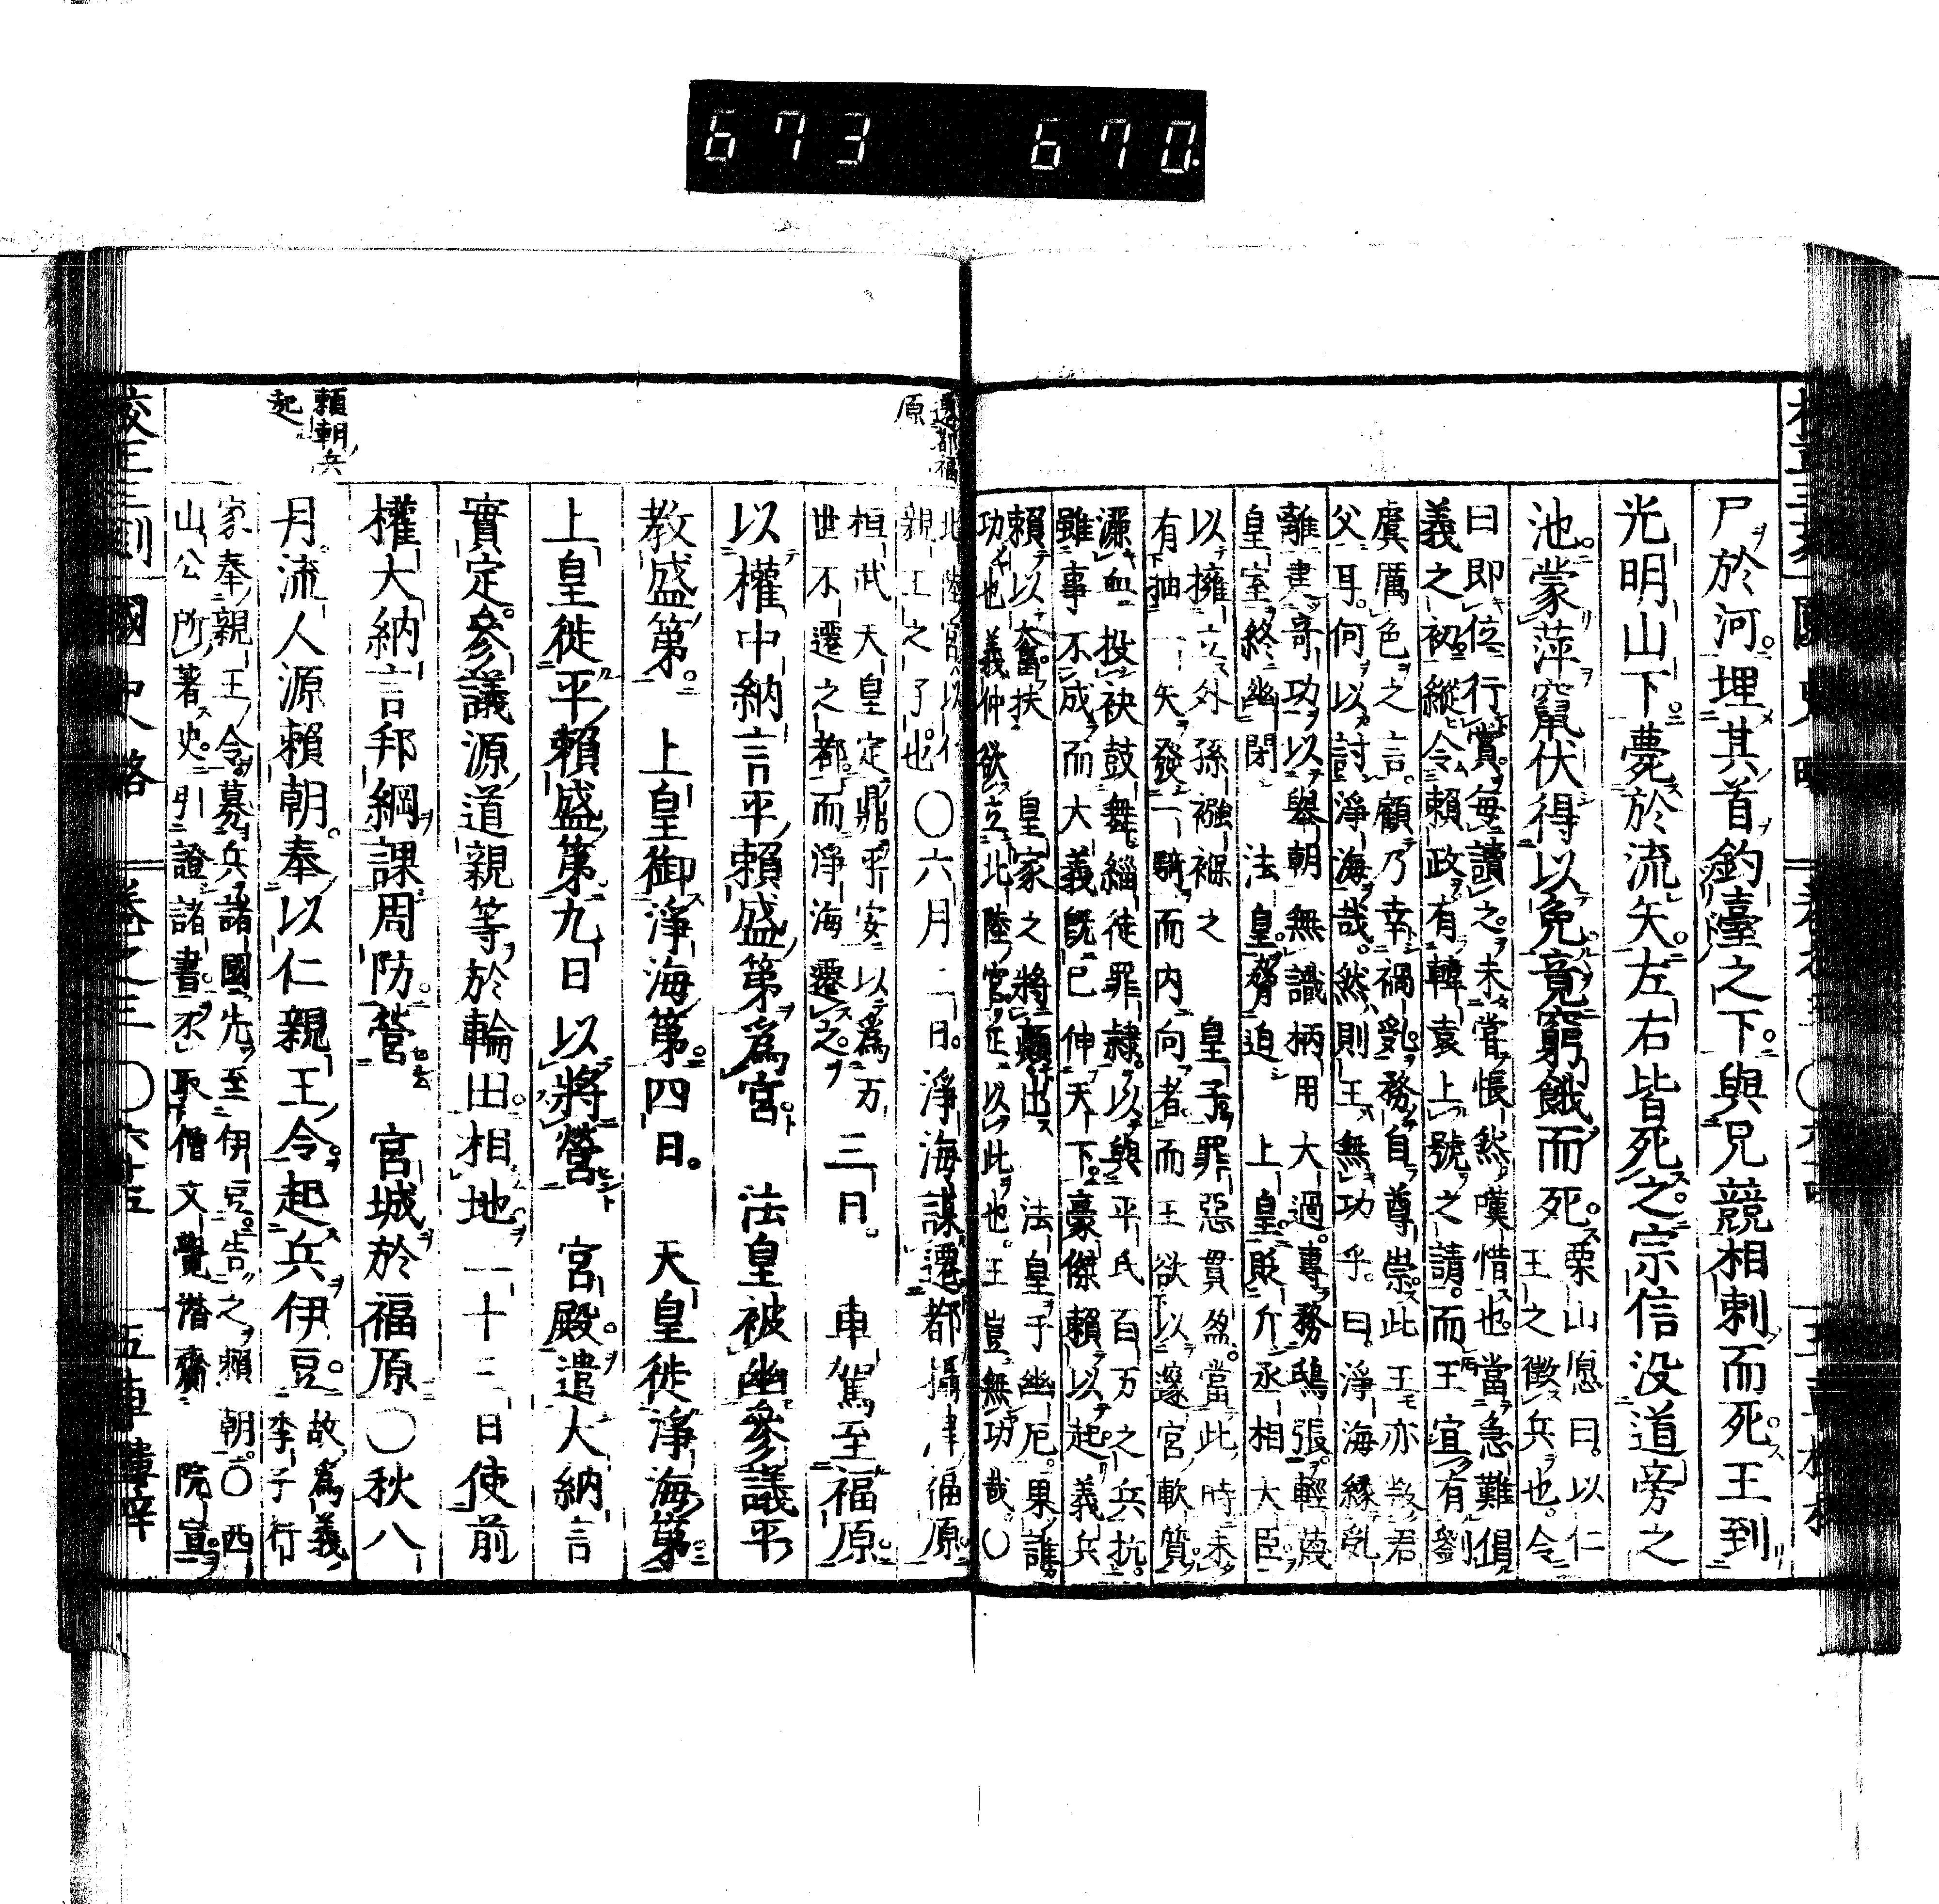 673 670.
尸於河埋其首釣臺之下與兄競相刺而死王到
光明山下薨於流矢左右皆死之宗信没道旁之
池蒙萍竄伏得以免竟窮餓而死
栗山愿曰以仁
王之徵兵也令
曰即位行賞每讀之未嘗不悵然嘆惜也當急難倶
義之初縱令賴政有韓袁上號之請而王宜有劉
虞厲色之言顧乃幸禍亂務自尊崇此王亦叛君
父耳何以討淨海哉然則王無功乎曰淨海縁亂
離建奇功以舉朝無識柄用大過專務鴟張輕蔑
皇室終幽閉 法皇脅迫 上皇貶斥丞相大臣
以擁立外孫襁褓之 皇子罪惡貫盈當此時未
有抽一矢發一騎而內向者而王欲以邃宮軟質
瀝血投袂鼓舞緇徒罪隷以與平氏百万之兵抗
雖事不成而大義既已伸天下豪傑賴以起義兵
賴以奮扶 皇家之將顛出 法皇于幽厄果誰
功也義仲欲立北陸宮正以此也王豈無功哉〇
北陸宮以仁
親王之子也
〇六月二日淨海謀遷都攝津福原
遷都福
原
桓武天皇定鼎平安以為万
世不遷之都而淨海遷之
三日 車駕至福原
以權中納言平賴盛第爲宮 法皇被幽參議平
教盛第 上皇御淨海第四日 天皇徙淨海第
上皇徙平賴盛第九日以將營 宮殿遣大納言
實定參議源道親等於輪田相地二十二日使前
權大納言邦綱課周防營 宮城於福原〇秋八
月流人源賴朝奉以仁親王令起兵伊豆
賴朝兵
起
故為義
季子行
家奉親王令募兵諸國先至伊豆告之賴朝〇西
山公所著史引證諸書不取僧文覺潜齎 院宣
國史略 卷之三 〇六十五 五車樓梓